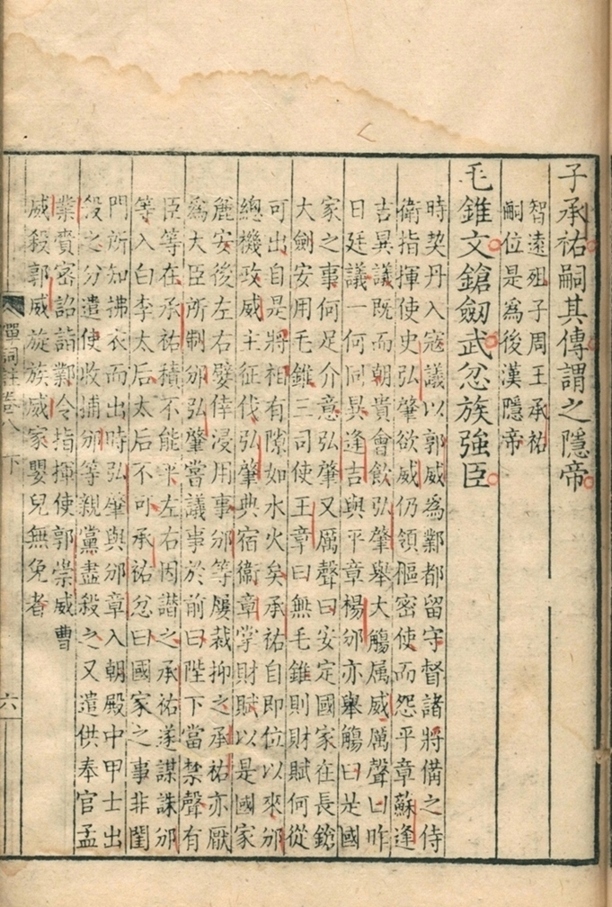 子承祐嗣其傳謂之隱帝
智遠殂子周王承祐
嗣位是爲後漢隱帝
毛錐文鎗劒武忿族強臣
時契丹入寇議以郭威爲鄴都留守督諸將備之侍
衛指揮使史弘肇欲威仍領樞密使而怨平章蘇逢
吉異議既而朝貴會飲弘肇舉大觴属威厲聲曰昨
日廷議一何同異逢吉與平章楊邠亦舉觴曰是國
家之事何足介意弘肇又厲聲曰安定國家在長鎗
大劍安用毛錐三司使王章曰無毛錐則財賦何從
可出自是將相有隙如水火矣承祐自即位以來邠
總機政威主征伐弘肇典宿衞章掌財賦以是國家
麤安後左右嬖倖浸用事邠等屢裁抑之承祐亦厭
爲大臣所制邠弘肇嘗議事於前曰陛下當禁聲有
臣等在承祐積不能平左右因譖之承祐遂謀誅邠
等入白李太后太后不可承祐忿曰國家之事非閨
門所知拂衣而出時弘肇與邠章入朝殿中甲士出
殺之分遣使收捕邠等親黨盡殺之又遣供奉官孟
業賫密詔詣鄴令指揮使郭崇威曹
威殺郭威旋族威家嬰兒無免者
卷八 下
六